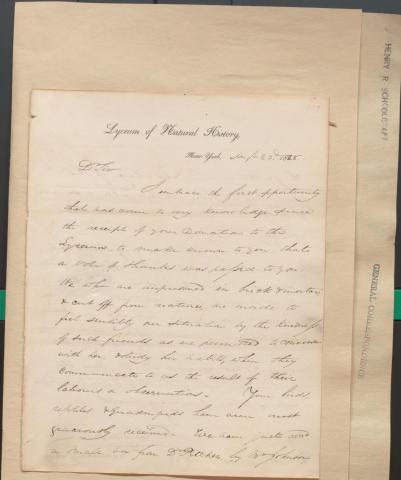 Lyceum of Natural History,
New-York,
Dr Sir
I embrace the first opportunity
that has come to my knowledge since
the receipt of your Donation to the
Lyceum, to make known to you that
a vote of thanks was passed to you
We who are imprisoned in brick & mortar
& cut off from nature, are made to
feel sensibly our situation by the kindness
of such friends as are permitted to converse
with her & study her habits, when they
Communicate to us the result of their
labours & observations. Your birds
reptiles & Quadrupeds have been most
graciously received. We have just
a male from Dr Pitcher by Mr Johnson
HENRY R SCHOOLCRAFT
GENERAL CORRESPONDENCE